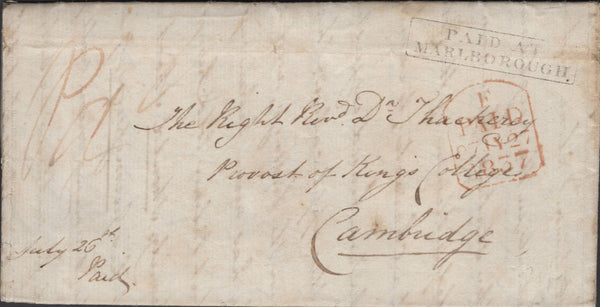 PAID AT
MARLBOROUGH.
The Right Revd. Dr. Thackeray
Provost of Kings College
Cambridge
July 26th
Paid.
PAID
1837